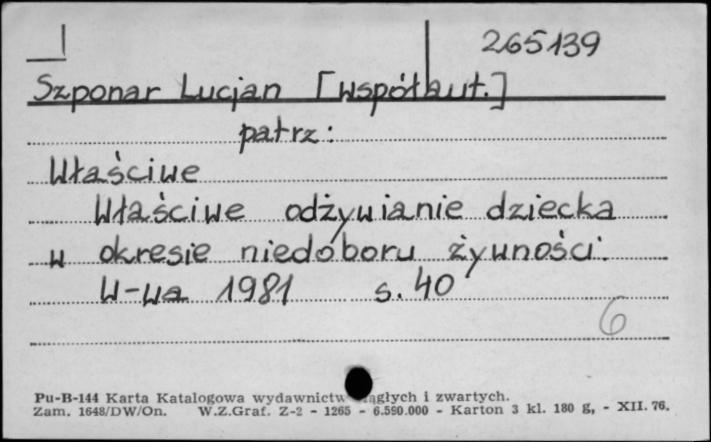 265139
Szponar Lucjan [współaut.]
patrz:
Właściwe
Właściwe odżywianie dziecka
w okresie niedoboru żywności.
W-wa 1981 s. 40
6
Pu-B-144 Karta Katalogowa wydawnictw ciągłych i zwartych.
Zam. 1648/DW/On. W.Z.Graf. Z-2 - 1265 - 6.590.000 - Karton 3 kl. 180 g, - XII. 76.